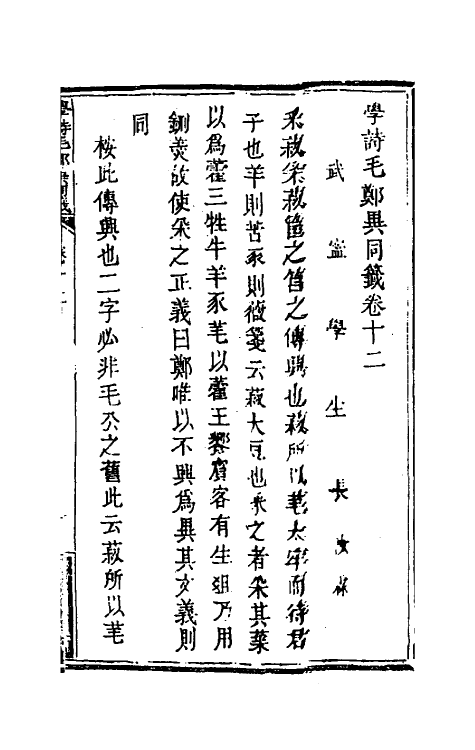 學詩毛鄭異同籤卷十二
武寍學生長汝霖
采菽采菽筐之筥之傳興也菽所以芼大牢而待君
子也羊則苦豕則薇箋云菽大豆也采之者采其葉
以爲藿三牲牛羊豕芼以藿王饗賓客有生俎乃用
鉶羮故使采之正義曰鄭唯以不興爲異其文義則
同
桉此傳興也二字必非毛公之舊此云菽所以芼